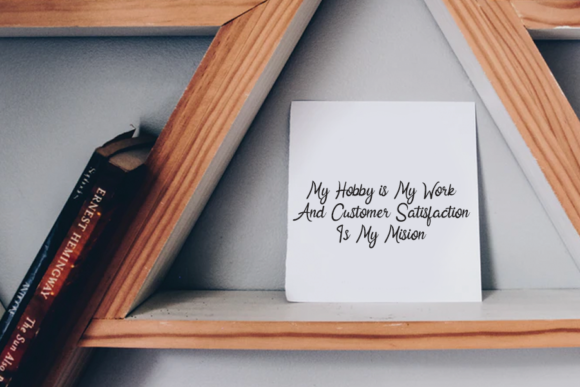 My Hobby is My Work
And Customer Satisfaction
Is My Mision
ERNEST HEMINGWAY
The Sun Also